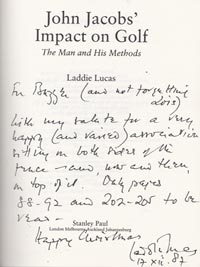 John Jacobs'
Impact on Golf
The Man and His Methods
Laddie Lucas
For Bagger (and not forgetting
Lois)
with my salute for a very
happy (and varied) association
sitting on both sides of the
fence – and, now and then,
on top of it. Only pages
88-92 and 202-205 to be
read –
Stanley Paul
London Melbourne Auckland Johannesburg
Happy Christmas
Laddie Lucas
17 XII 87